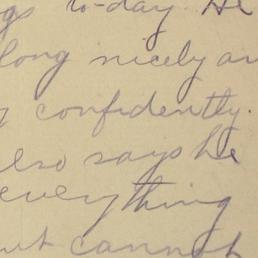 gs to-day. He
long nicely an
g confidently.
also says he
everything
but cannot